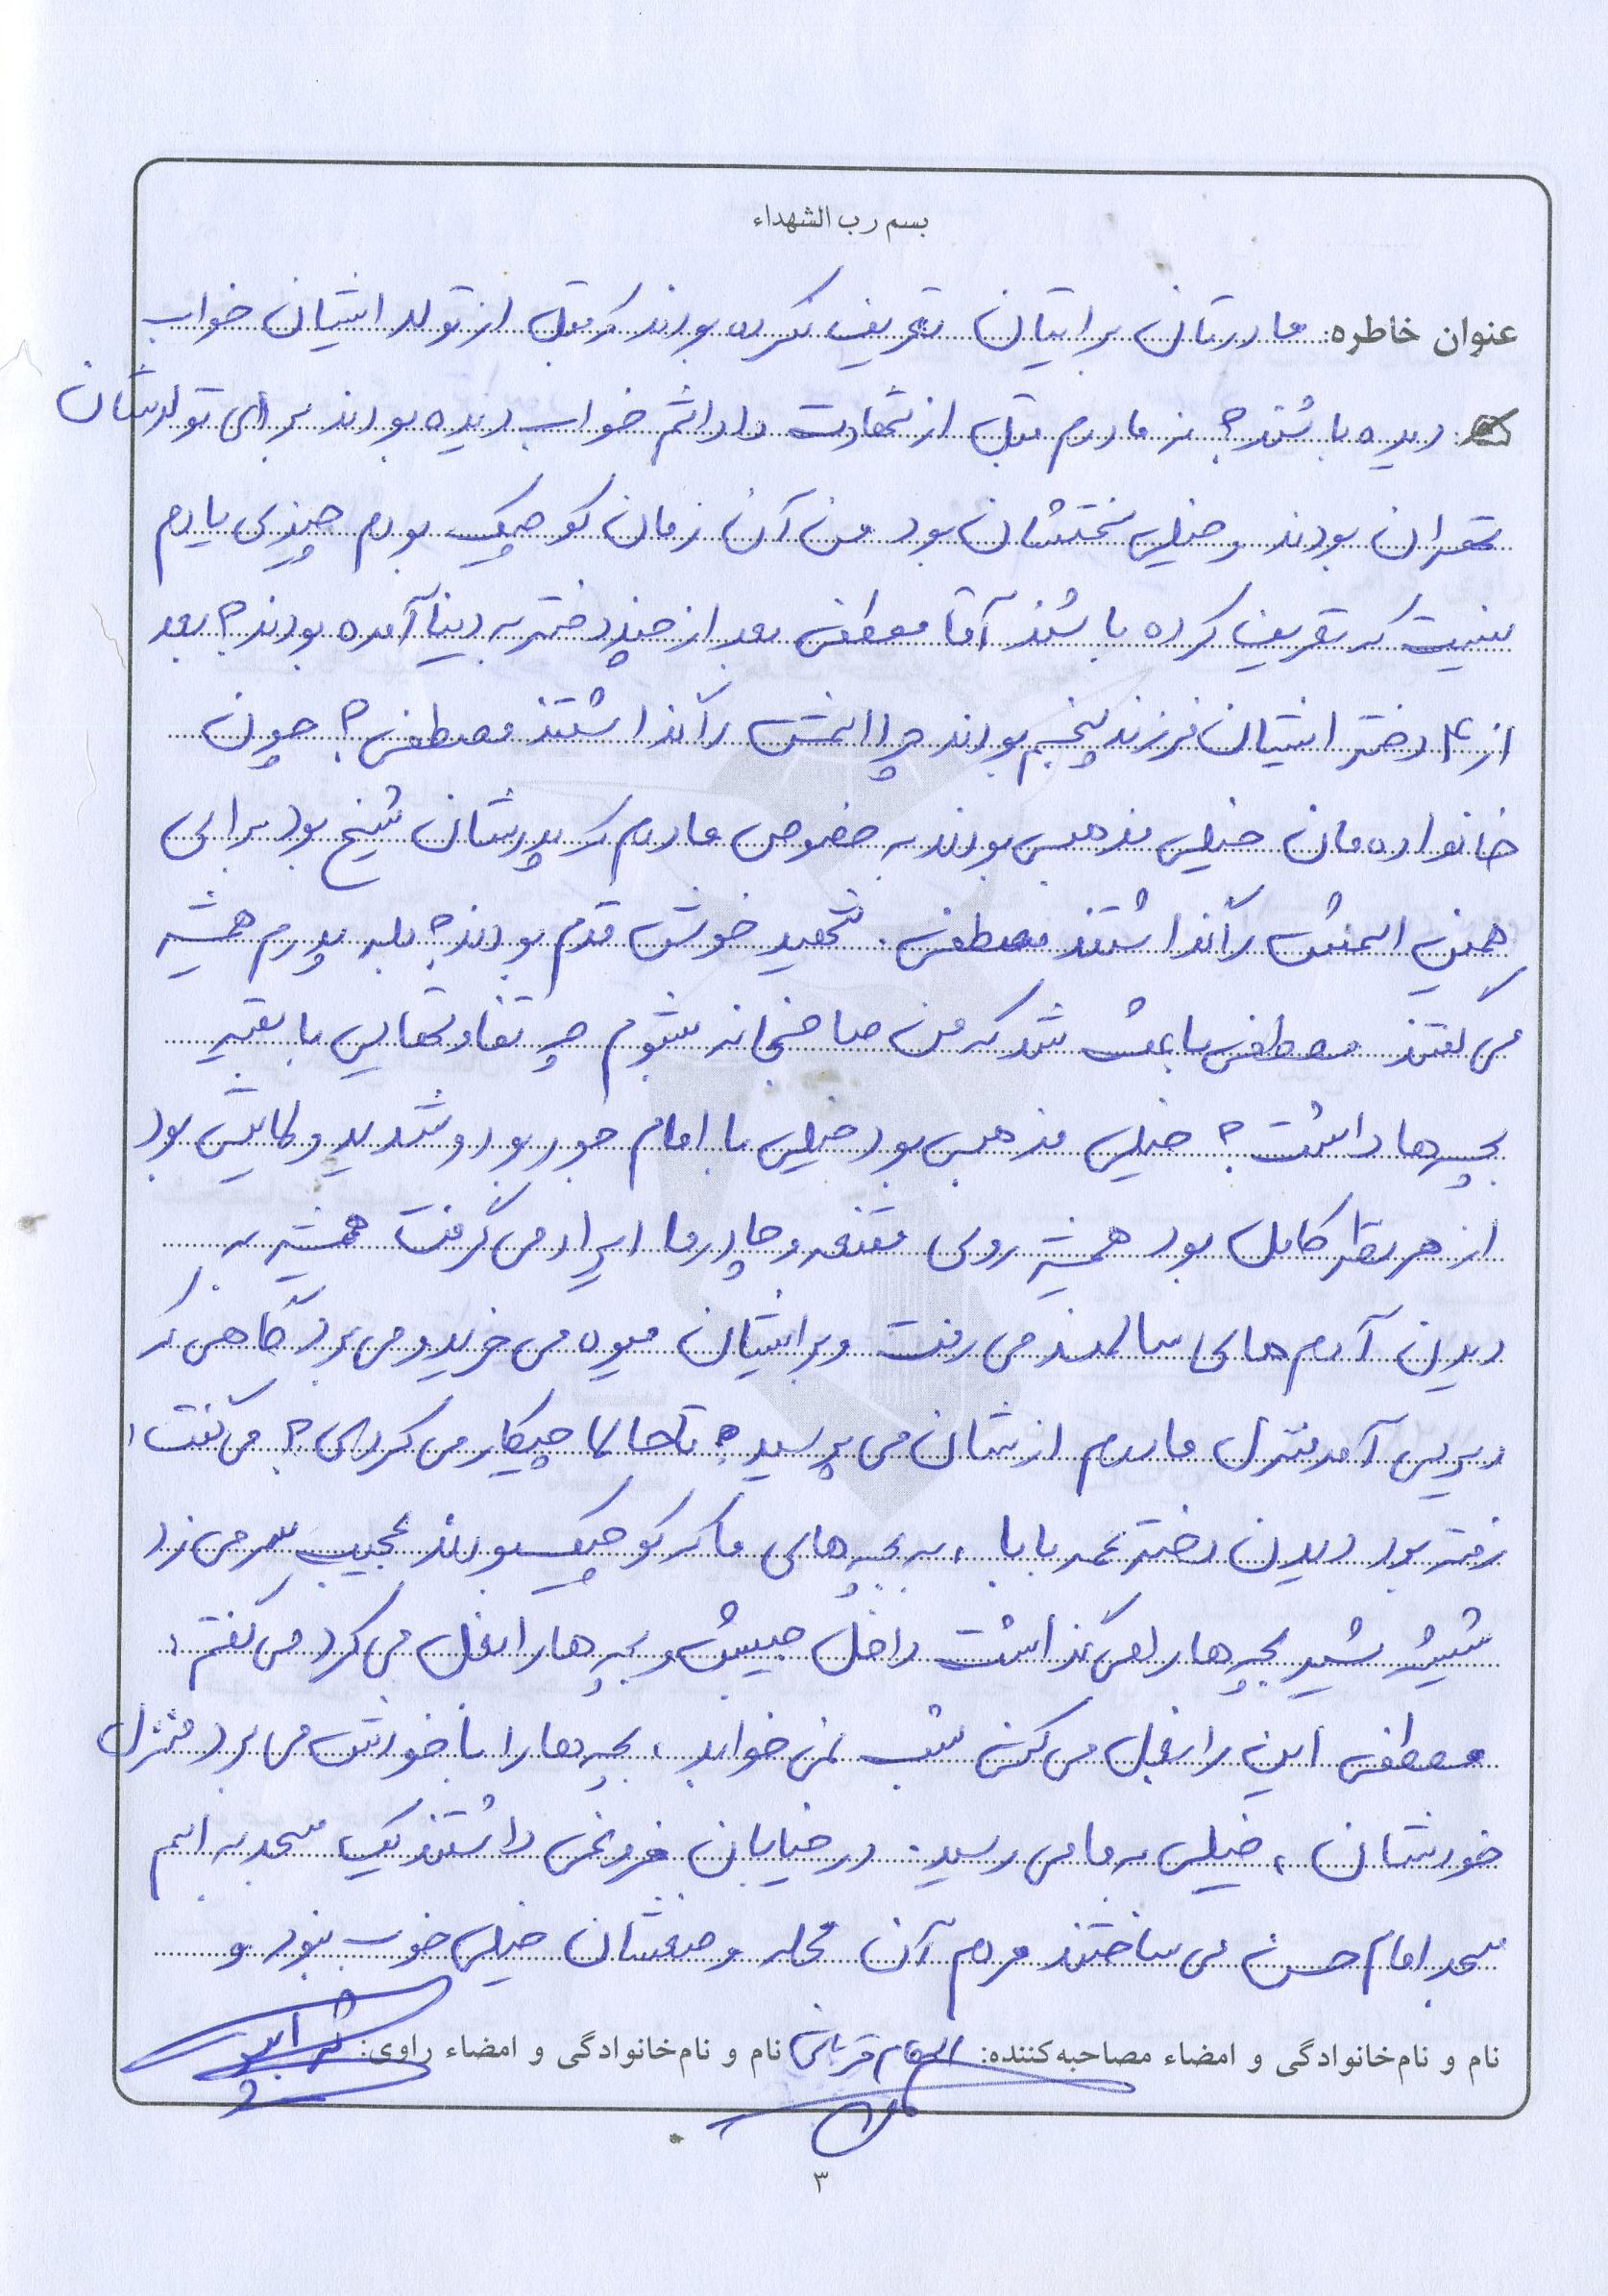 بسم رب الشهداء
عنوان خاطره: مادرتان برایتان تعریف نکرده بودند که قبل از تولد ایشان خواب
دیده باشند؟ نه مادرم قبل از شهادت داداشم خواب دیده بودند برای تولدشان
تهران بودند و خیلی سختشان بود من آن زمان کوچک بودم چیزی یادم
نیست که تعریف کرده باشند آقا مصطفی بعد از چند دختر به دنیا آمده بودند؟ بعد
از ۴ دختر ایشان فرزند پنجم بودند چرا اسمش را گذاشتند مصطفی؟ چون
خانواده مان خیلی مذهبی بودند به خصوص مادرم که پدرشان شیخ بود برای
همین اسمش را گذاشتند مصطفی. شهید خوش قدم بودند؟ بله پدرم همیشه
می گفتند مصطفی باعث شد که من صاحبخانه شوم چه تفاوتهایی با بقیه
بچه ها داشت؟ خیلی مذهبی بود خیلی با امام جور بود و شدید ولایتی بود
از هر نظر کامل بود همیشه روی مقنعه و چادر ما ایراد می گرفت همیشه به
دیدن آدم های سالمند می رفت و برایشان میوه می خرید و می برد گاهی که
دیر می آمد منزل مادرم ازشان می پرسید؟ تا حالا چیکار می کردی؟ می گفت:
رفته بود دیدن دختر عمه بابا، به بچه های ما که کوچک بودند عجیب سر می زد
شیشه شیر بچه ها را می گذاشت داخل جیبش و بچه ها را بغل می کرد می گفتم:
مصطفی این را بغل می کنی شب نمی خوابد، بچه ها را با خودش می برد منزل
خودشان، خیلی به ما می رسید. در خیابان فروغی داشتند یک مسجد به اسم
مسجد امام حسن می ساختند مردم آن محله وضعشان خیلی خوب نبود و
نام و نام‌خانوادگی و امضاء مصاحبه‌کننده: الهام قربانی نام و نام‌خانوادگی و امضاء راوی:
۳